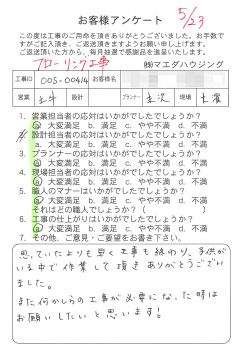 お客様アンケート 5/23
この度は工事のご用命を頂きありがとうございました。お手数で
すがご記入頂き、ご返送頂きますようお願い申し上げます。
ご返送頂いた方から、毎月抽選で感謝品を進呈いたします。
フローリング工事
㈱マエダハウジング
工事ID 005-00414 お客様名
営業 設計 プランナー 現場
1. 営業担当者の応対はいかがでしたでしょうか?
a 大変満足 b. 満足 c. やや不満 d. 不満
2. 設計担当者の応対はいかがでしたでしょうか?
a. 大変満足 b. 満足 c. やや不満 d. 不満
3. プランナーの応対はいかがでしたでしょうか?
a 大変満足 b. 満足 c. やや不満 d. 不満
4. 現場担当者の応対はいかがでしたでしょうか?
a 大変満足 b. 満足 c. やや不満 d. 不満
5. 職人のマナーはいかがでしたでしょうか?
a 大変満足 b. 満足 c. やや不満 d. 不満
それはどの職人でしょうか?( )
6. 工事の仕上がりはいかがでしたでしょうか?
a 大変満足 b. 満足 c. やや不満 d. 不満
7. その他、ご意見・ご要望をお書き下さい。
思っていたよりも早く工事も終わり、子供が
いる中で作業して頂きありがとうござい
ました。
また何かしらの工事が必要になった時は
お願いしたいと思います!